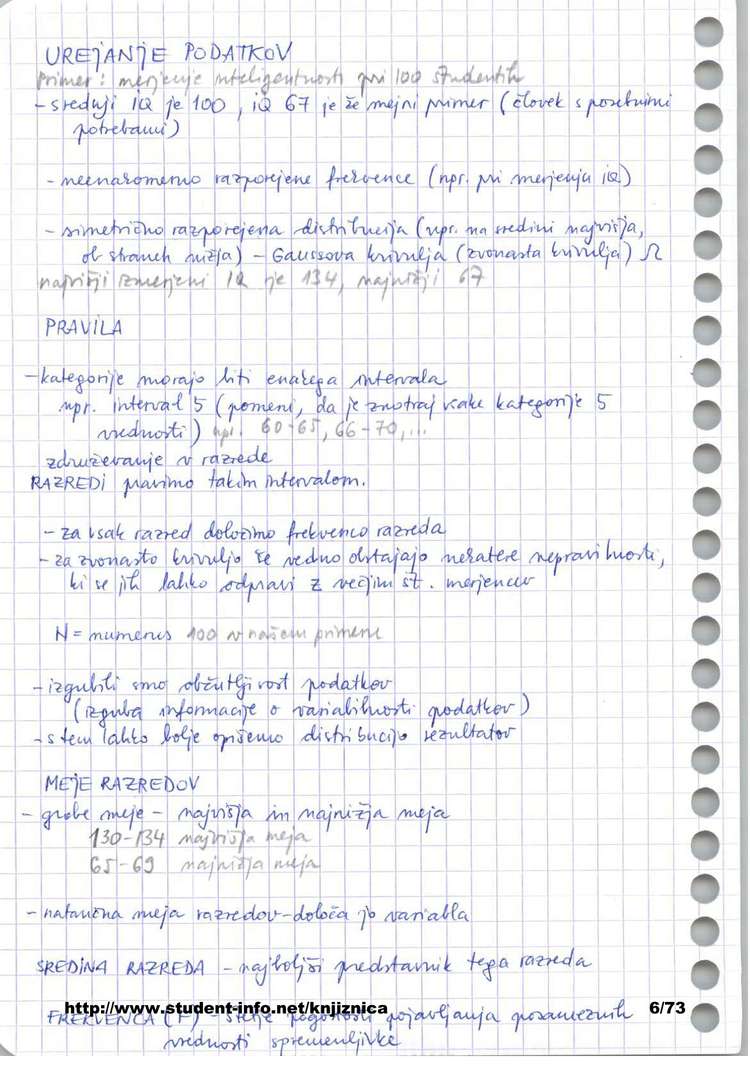 UREJANJE PODATKOV
Primer: merjenje inteligentnosti pri 100 študentih
- srednji IQ je 100, IQ 67 je že mejni primer (človek s posebnimi
potrebami)
- neenakomerno razporejene frekvence (npr. pri merjenju IQ)
- simetrično razporejena distribucija (npr. na sredini najvišja,
ob straneh nižja) - Gaussova krivulja (zvonasta krivulja)
najvišji izmerjeni IQ je 134, najnižji 67
PRAVILA
- kategorije morajo biti enakega intervala
npr. interval 5 (pomeni, da je znotraj vsake kategorije 5
vrednosti) npr. 60-65, 66-70,...
združevanje v razrede
RAZREDI pravimo takim intervalom.
- za vsak razred določimo frekvenco razreda
- za zvonasto krivuljo še vedno obstajajo nekatere nepravilnosti,
ki se jih lahko odpravi z večjim št. merjencev
N = numerus 100 v našem primeru
- izgubili smo občutljivost podatkov
(izguba informacije o variabilnosti podatkov)
- s tem lahko bolje opišemo distribucijo rezultatov
MEJE RAZREDOV
- grobe meje - najvišja in najnižja meja
130-134 najvišja meja
65-69 najnižja meja
- natančna meja razredov - določa jo variabla
SREDINA RAZREDA - najboljši predstavnik tega razreda
FREKVENCA (F) - pogostosti pojavljanja posameznih
vrednosti spremenljivke
http://www.student-info.net/knjiznica 6/73